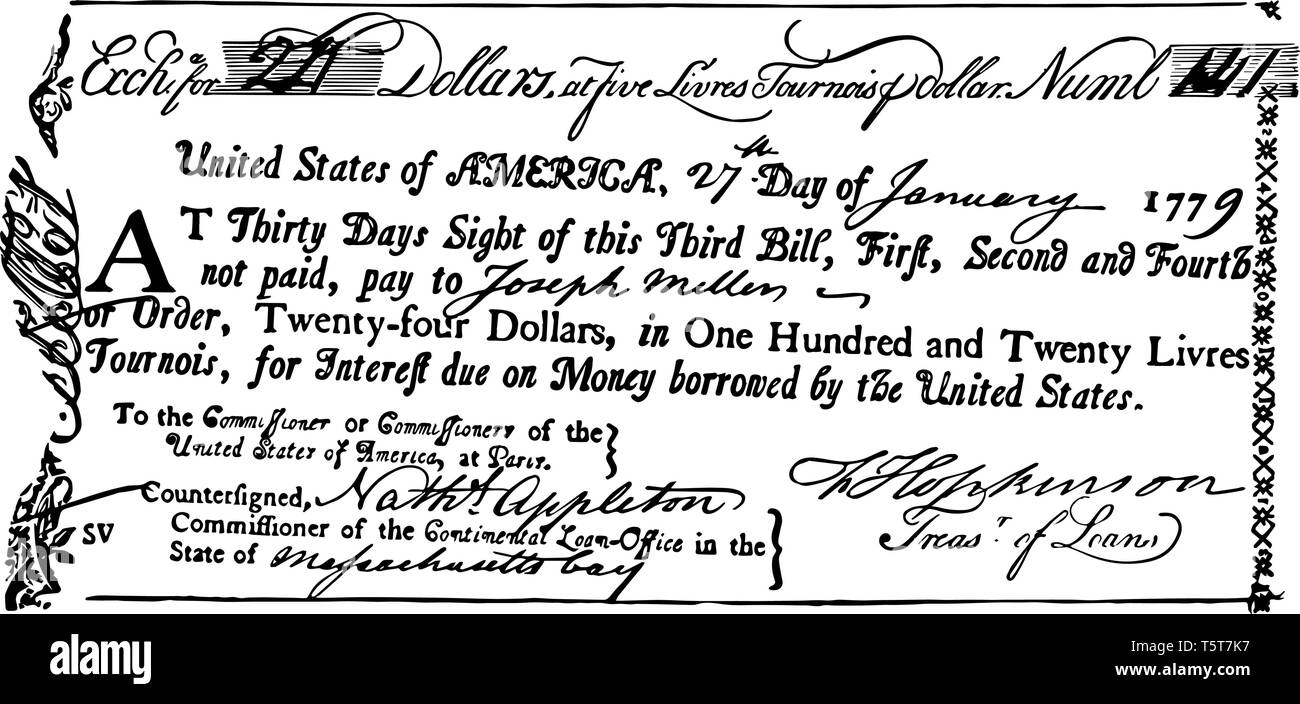 Exchᵃ. for 24 Dollars, at five Livres Tournois ⅌ Dollar. Numb
United States of AMERICA, 27th Day of January 1779
AT Thirty Days Sight of this Third Bill, Firſt, Second and Fourth
not paid, pay to Joseph Mellen
or Order, Twenty-four Dollars, in One Hundred and Twenty Livres
Tournois, for Intereſt due on Money borrowed by the United States.
To the Commiſſioner or Commiſſioners of the
United States of America, at Paris.
Counterſigned, Nathˡ. Appleton
Commiſſioner of the Continental Loan-Office in the
State of Massachusetts bay
SV
Hopkinson
Treasʳ. of Loans
alamy
Image ID: T5T7K7
www.alamy.com